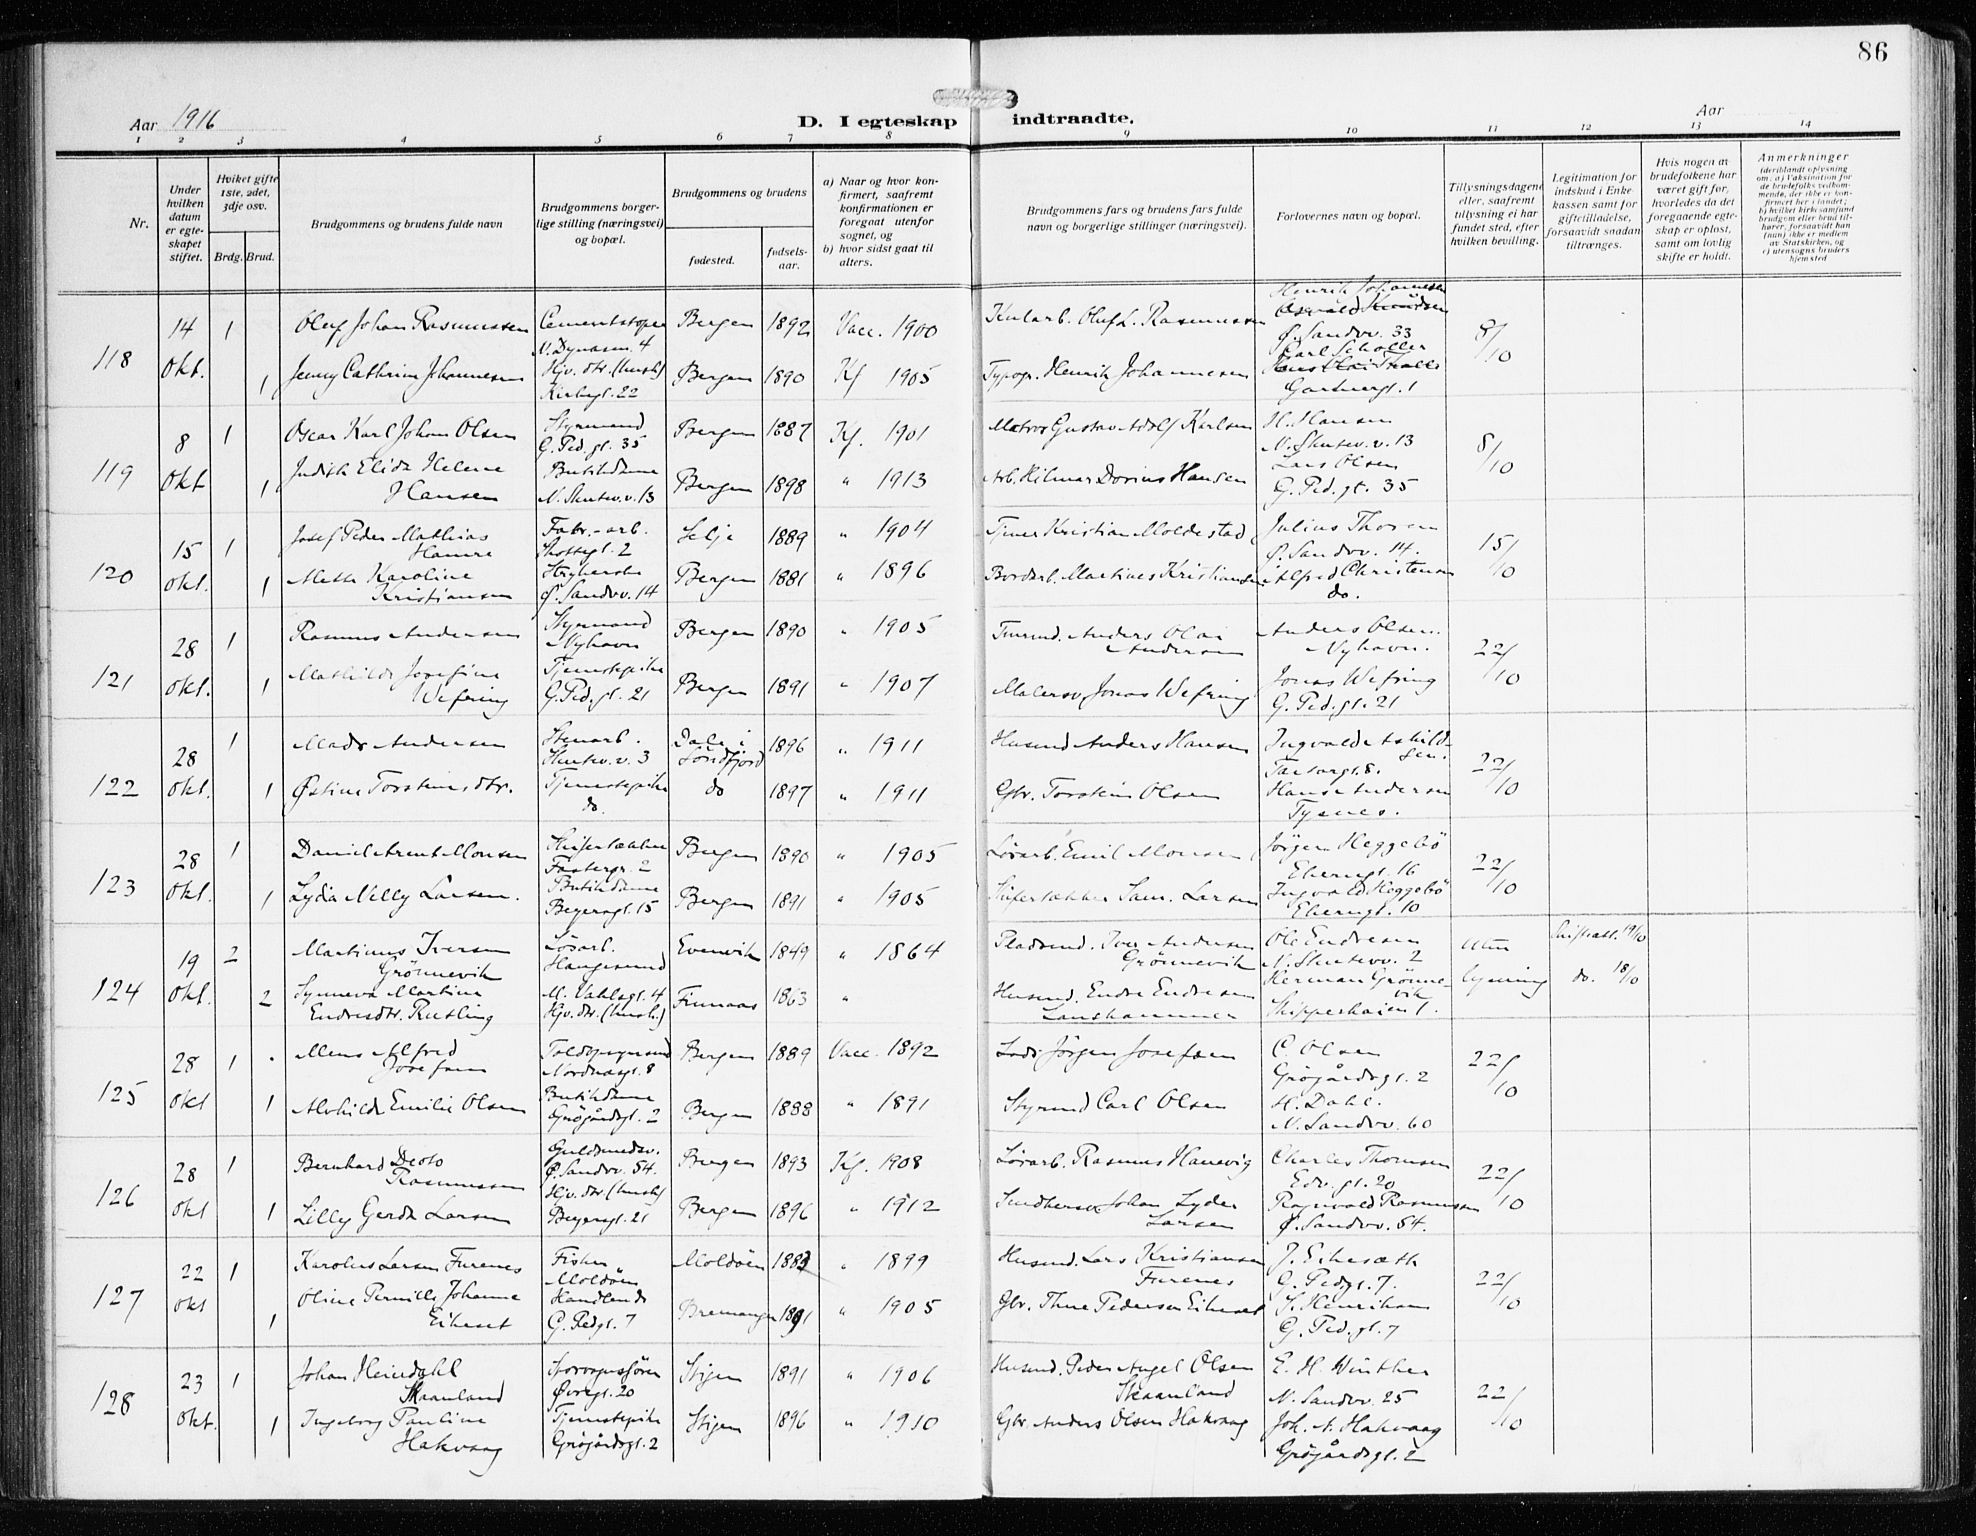 86
Aar 1916
D. I egteskap indtraadte.
Aar
1 2 3 4 5 6 7 8 9 10 11 12 13 14
Nr.
Under hvilken datum er egteskapet stiftet.
Hvilket gifte 1ste, 2det, 3dje osv.
Brdg. Brud.
Brudgommens og brudens fulde navn
Brudgommens borgerlige stilling (næringsvei) og bopæl.
Brudgommens og brudens
fødested.
fødsels-aar.
a) Naar og hvor konfirmert, saafremt konfirmationen er foregaat utenfor sognet, og
b) hvor sidst gaat til alters.
Brudgommens fars og brudens fars fulde navn og borgerlige stillinger (næringsvei).
Forlovernes navn og bopæl.
Tillysningsdagene eller, saafremt tillysning ei har fundet sted, efter hvilken bevilling.
Legitimation for indskud i Enkekassen samt for giftetilladelse, forsaavidt saadan tiltrænges.
Hvis nogen av brudefolkene har været gift før, hvorledes da det foregaaende egteskap er opløst, samt om lovlig skifte er holdt.
Anmerkninger
118
14 1 Oluf Johan Rasmussen Bergen 1892 Vacc. 1900 Oluf L. Rasmussen Henrik Johannesen
Ø. Sandvv. 33 8/10
Okt. 1 Jenny Cathrine Johannesen Bergen 1890 Kf 1905 Typogr. Henrik Johannesen Carl Scholler
Kirkegt. 22
119
8 1 Oscar Karl Johan Olsen Styrmand Bergen 1887 Kf. 1901 Matros Gustav Adolf Karlsen H. Hansen
G. Ped. gt. 35 N. Skutev. v. 13 8/10
Okt 1 Judith Elida Helene Butikdame Bergen 1898 " 1913 Arb. Hilmar Dorius Hansen Lars Olsen
Hansen N. Skutev. v. 13 G. Ped. gt. 35
120
15 1 Josef Peder Mathias Fabr.-arb. Selje 1889 " 1904 Tjener Kristian Moldestad Julius Thorsen
Hamre Ø. Sandvv. 14. 15/10
Okt. 1 Mette Karoline Bergen 1881 " 1896 Bordarb. Martines Kristiansen Alfred Christensen
Kristiansen Ø. Sandvv. 14 do.
121
28 1 Rasmus Andersen Styrmand Bergen 1890 " 1905 Anders Olai Anders Olsen.
Nyhavn Andersen Nyhavn. 22/10
Okt. 1 Mathilde Josefine Tjenestepike Bergen 1891 " 1907 Malersv Jonas Wefring Jonas Wefring
Wefring G. Ped. gt. 21 G. Ped. gt. 21
122
28 1 Mads Andersen Stenarb. Dale i 1896 " 1911 Husmd Anders Hansen Ingvald Askild-
Skutev. v. 3 Söndfjord sen. 22/10
Okt. 1 Østine Torsteinsdtr. Tjenestepike do 1897 " 1911 Gbr. Torstein Olsen Hans Andersen
do. Tysnes.
123
28 1 Daniel Arent Monsen Skifertækker Bergen 1890 " 1905 Lösarb. Emil Monsen Jörgen Heggebö
22/10
Okt. 1 Lydia Nelly Larsen. Butikdame Bergen 1891 " 1905 Skifertækker Sam. Larsen Ingvald Heggebö
Beyersgt. 15
124
19 2 Martinus Iversen Lösarb. Evenvik 1849 " 1864 Pladsmd. Iver Andersen Ole Endresen uten Skifteatt. 19/10
Grönnevik Haugesund Grönnevik N. Skutevv. 2
Okt. 2 Synneva Martine Finnaas 1863 " Husmd. Endre Endresen Herman Grönne- lysning do. 18/10
Endresdtr. Rutling Hjv. dtr. (husst.) vik
125
28 1 Mens Alfred Bergen 1889 Vacc. 1892 Lods Jörgen Josefsen C. Olsen
Josefsen Nordnesgt. 8 Grögårdsgt. 2 22/10
Okt 1 Alvhilde Emilie Olsen Butikdame Bergen 1888 " 1891 Styrmd Carl Olsen H. Dahl.
Grögårdsgt. 2 N. Sandvv. 60
126
28 1 Bernhard Guldsmedsv. Bergen 1893 Kf. 1908 Lösarb. Rasmus Hanevig Charles Thomsen
Rasmussen Ø. Sandvv. 54. Edv. gt. 20 22/10
Okt 1 Lilly Gerda Larsen Hjv. dtr. (husst.) Bergen 1896 " 1912 Johan Lyder Ragnvald Rasmussen
Beyersgt. 21 Larsen Ø. Sandvv. 54.
127
22 1 Karolus Larsen Furenes Fisker Moldöen 1883 " 1899 Husmd. Lars Kristiansen J. Eikesæth
Moldöen Furenes G. Pedgt. 7. 22/10
Okt 1 Oline Pernille Johanne Bremanger 1891 " 1905 Gbr. Thue Pedersen Eikeset S. Henriksen
Eikeset G. Pedgt. 7 G. Ped. gt. 7
128
23 1 Johan Heimdahl Sporvognsförer Stigen 1891 " 1906 Husmd. Peder Angel Olsen E. H. Winther
Skaanland Øvregt. 20 Skaanland N. Sandvv. 25 22/10
Okt. 1 Ingeborg Pauline Tjenestepike Stigen 1896 " 1910 Gbr. Anders Olsen Hakvaag Joh. A. Hakvaag
Hakvaag Grögårdsgt. 2 Grögårdsgt. 2